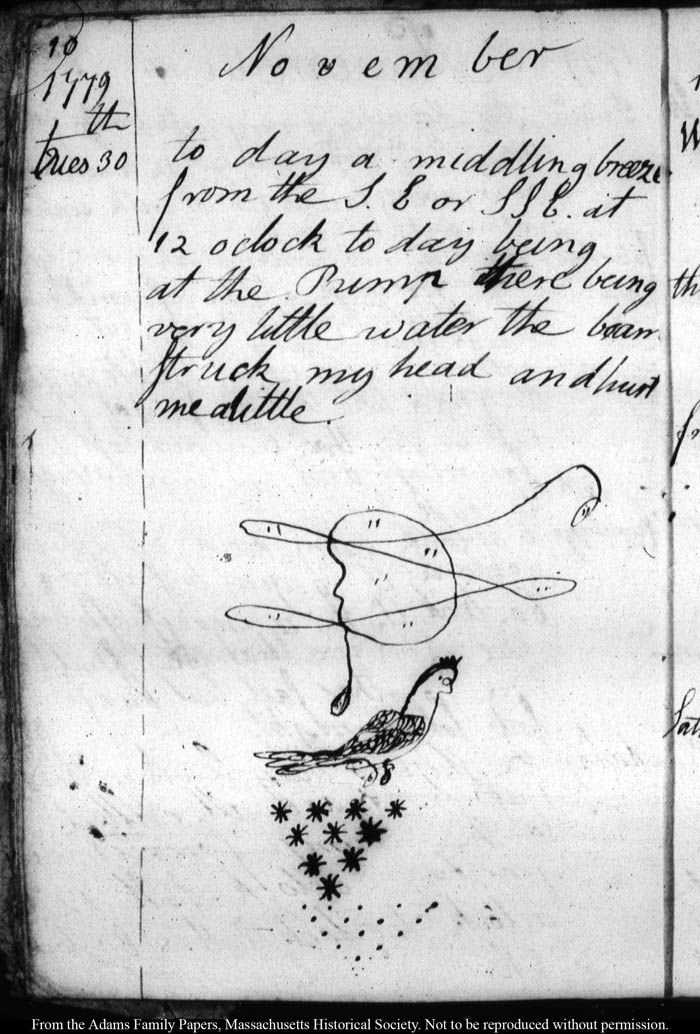 10
1779
th
tues 30
November
to day a middling breeze
from the S. E or SSE. at
12 oclock to day being
at the Pump there being
very little water the beam
struck my head and hurt
me alittle.
W
th
fr
Sat
From the Adams Family Papers, Massachusetts Historical Society. Not to be reproduced without permission.